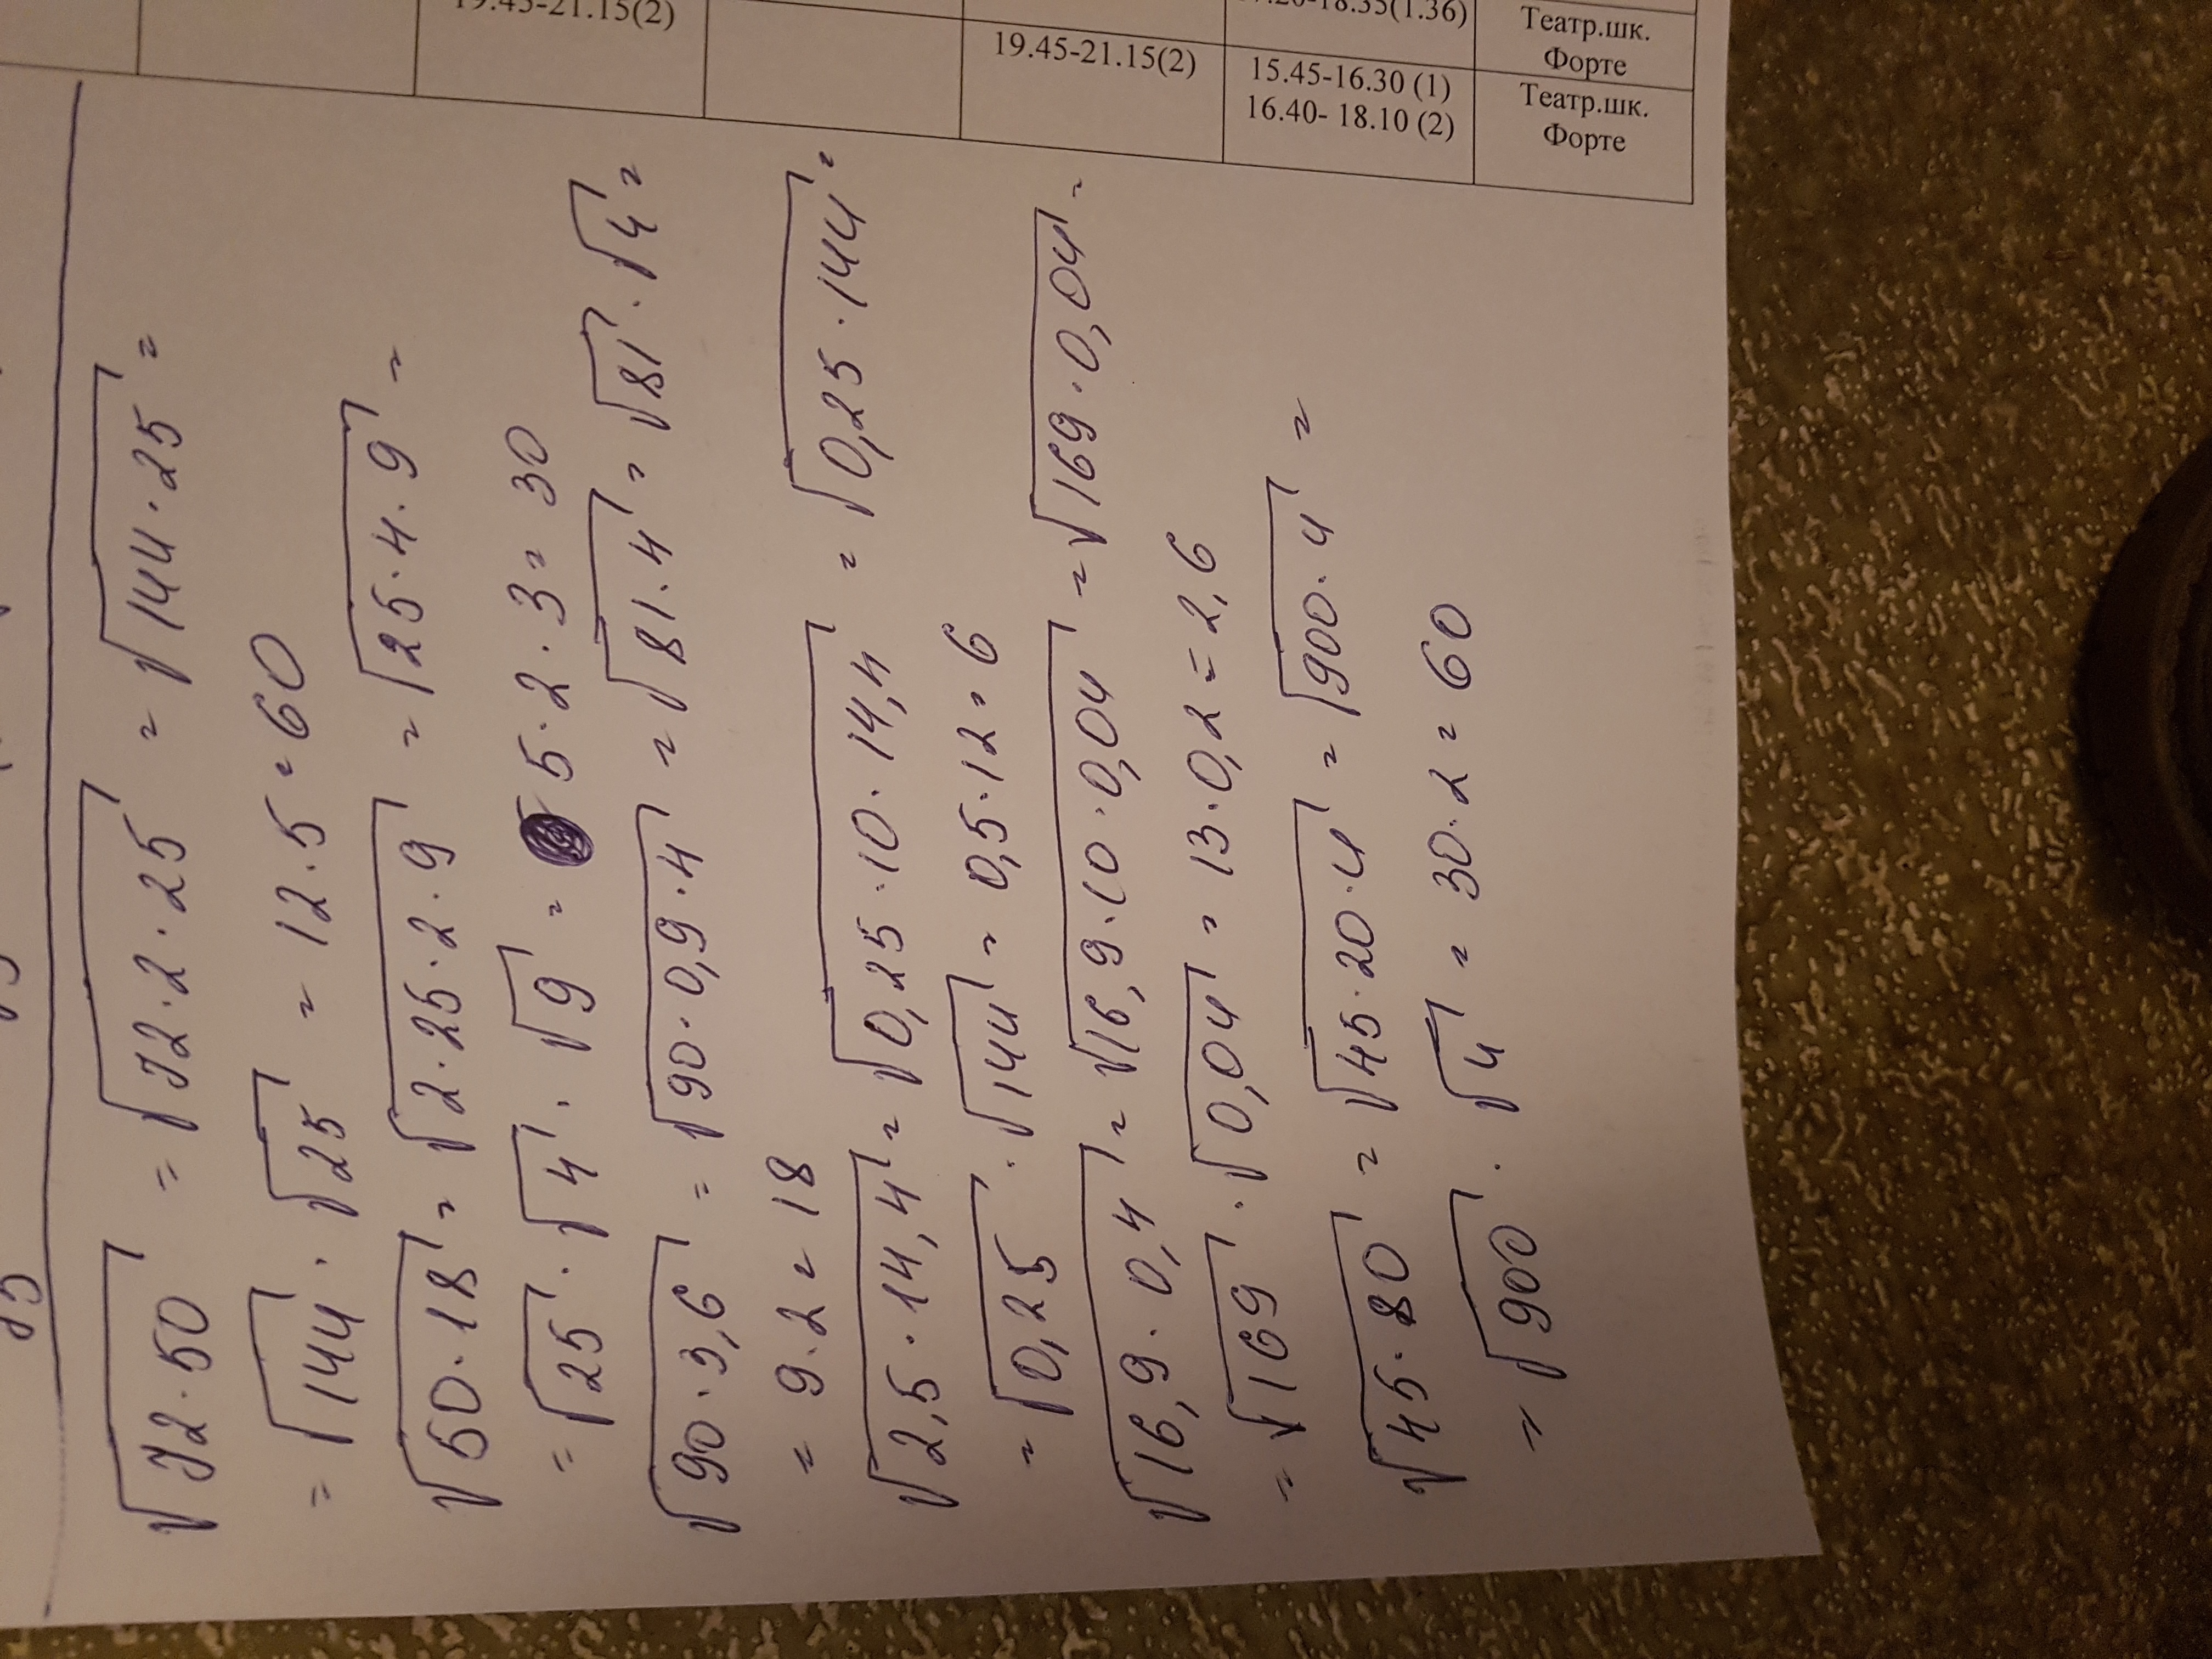 19.45-21.15(2)
19.45-21.15(2)
15.45-16.30 (1)
16.40- 18.10 (2)
Театр.шк.
Форте
Театр.шк.
Форте
√72·50 = √72·2·25 = √144·25 =
= √144 · √25 = 12·5 = 60
√50·18 = √2·25·2·9 = √25·4·9 =
= √25 · √4 · √9 = 5·2·3 = 30
√90·3,6 = √90·0,9·4 = √81·4 = √81 · √4 =
= 9·2 = 18
√2,5·14,4 = √0,25·10·14,4 = √0,25·144 =
= √0,25 · √144 = 0,5·12 = 6
√16,9·0,4 = √16,9·10·0,04 = √169·0,04 =
= √169 · √0,04 = 13·0,2 = 2,6
√45·80 = √45·20·4 = √900·4 =
= √900 · √4 = 30·2 = 60